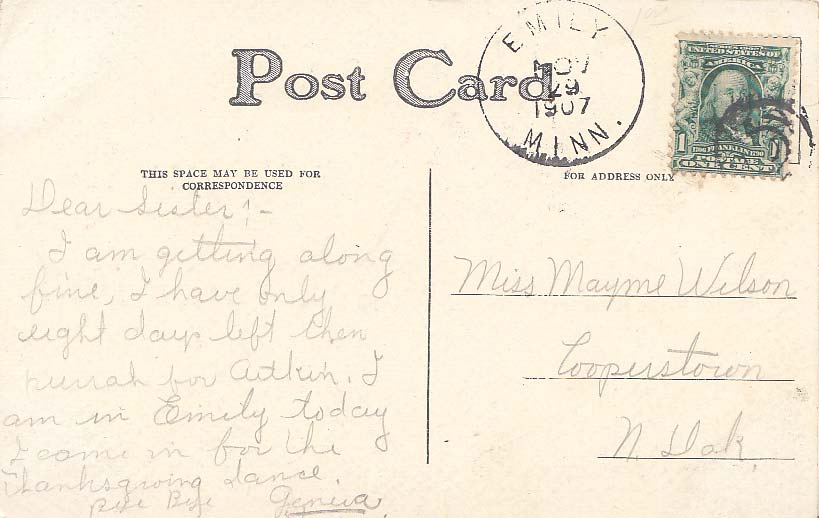 Post Card
EMILY
NOV
29
1907
MINN.
UNITED STATES OF
AMERICA
FRANKLIN
POSTAGE
1
ONE CENT
THIS SPACE MAY BE USED FOR
CORRESPONDENCE
FOR ADDRESS ONLY
Dear Sister:-
I am getting along
fine, I have only
eight days left then
hurrah for Aitkin. I
am in Emily today
I came in for the
Thanksgiving dance.
Bye Bye Geneva
Miss Mayme Wilson
Cooperstown
N. Dak.